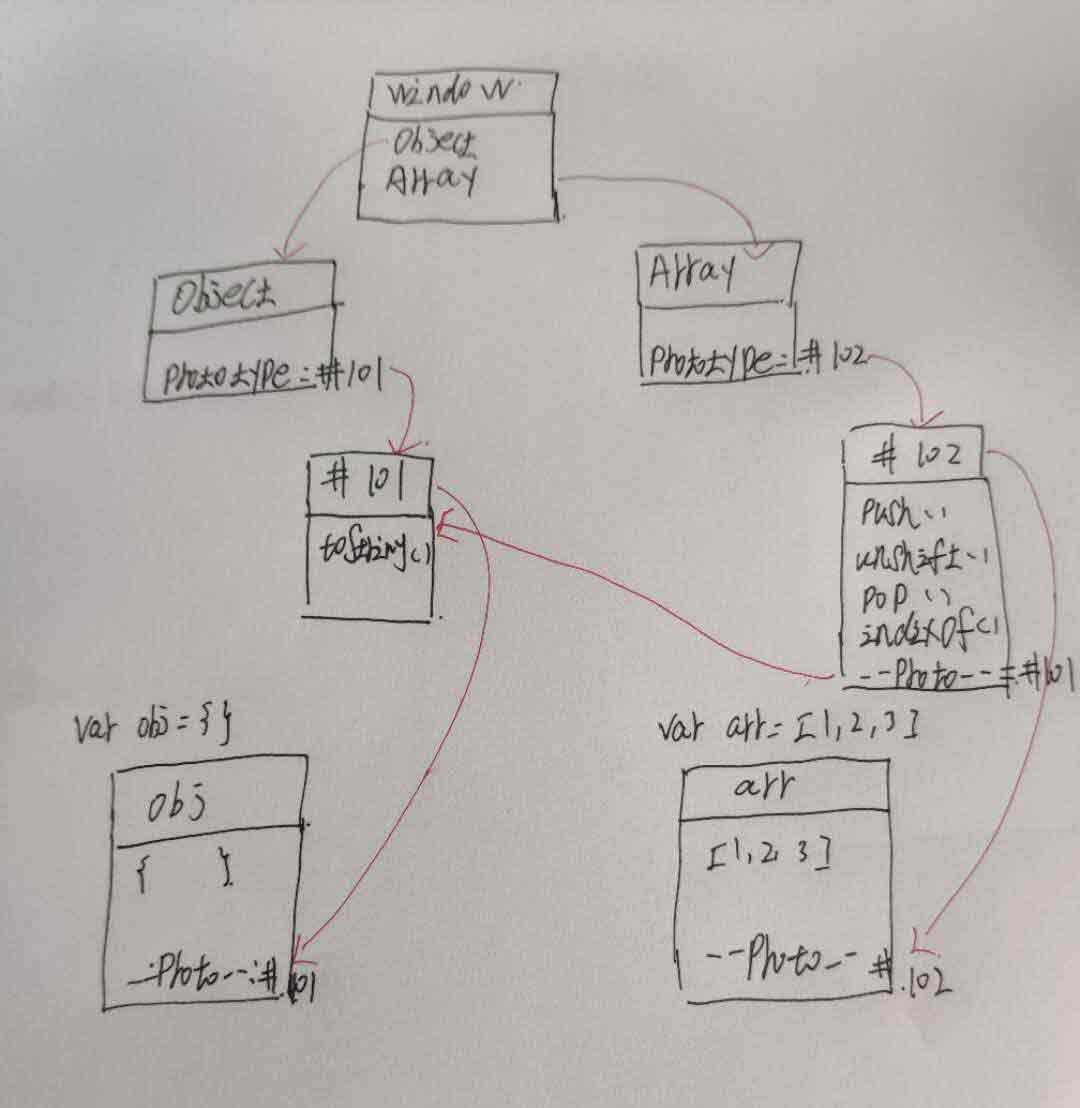 window
Object
Array
Object
prototype=#101
Array
prototype=#102
#101
toString()
#102
push()
unshift()
pop()
indexOf()
--proto--=#101
var obj={}
obj
{ }
--proto--:#101
var arr=[1,2,3]
arr
[1,2,3]
--proto--#102